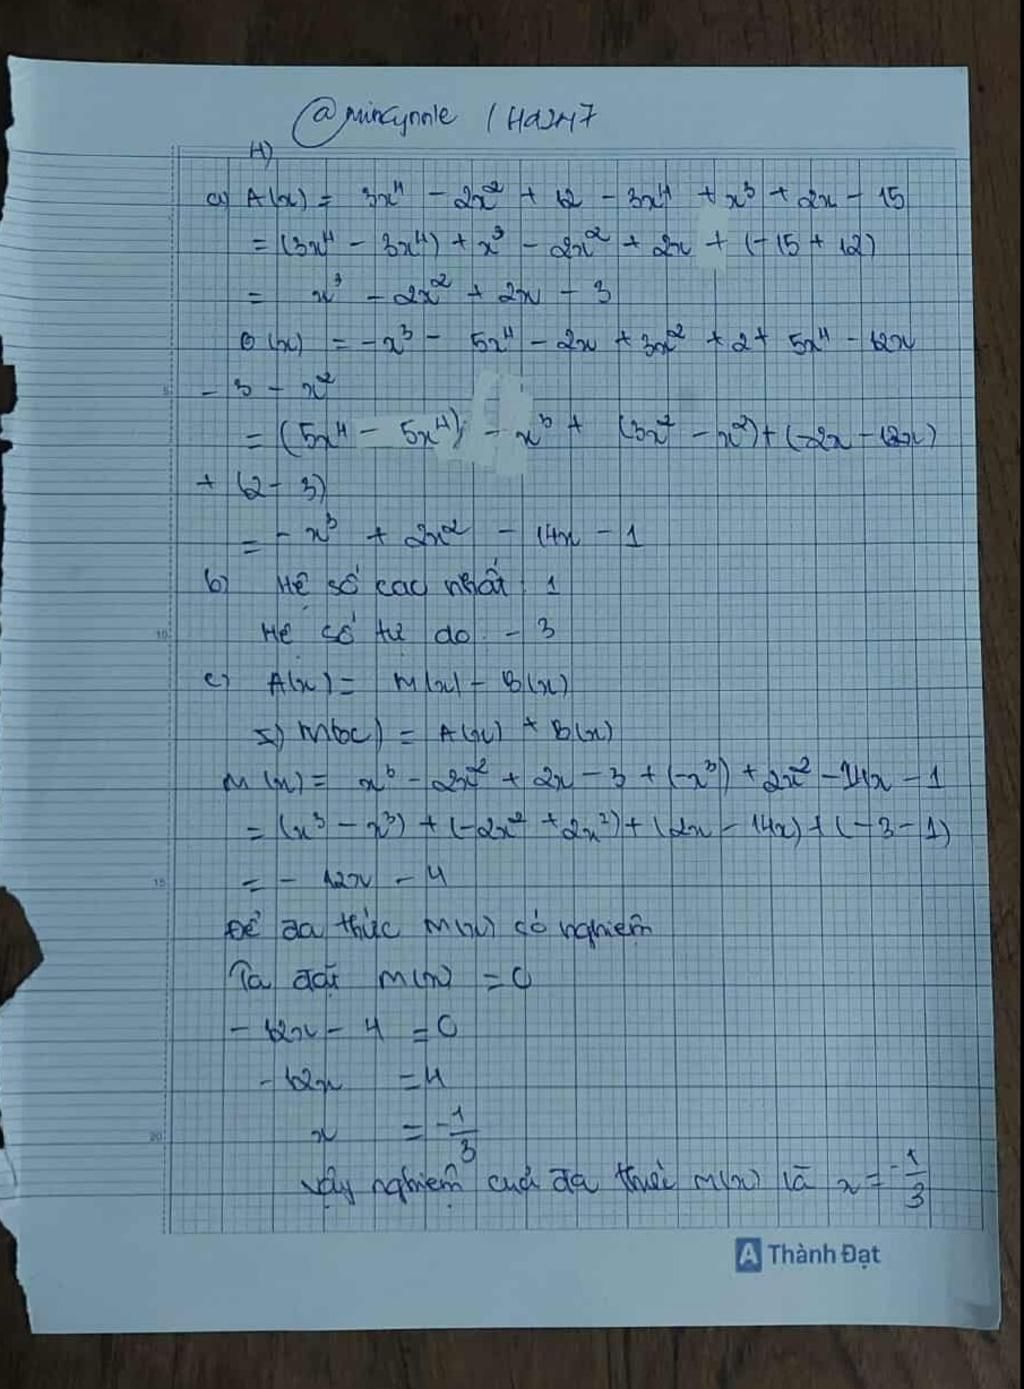 @mincynnie / Hd247
4)
a) A(x) = 3x⁴ - 2x² + 12 - 3x⁴ + x³ + 2x - 15
= (3x⁴ - 3x⁴) + x³ - 2x² + 2x + (-15 + 12)
= x³ - 2x² + 2x - 3
B(x) = -x³ - 5x⁴ - 2x + 3x² + 2 + 5x⁴ - 12x
- 3 - x²
= (5x⁴ - 5x⁴) - x³ + (3x² - x²) + (-2x - 12x)
+ (2 - 3)
= - x³ + 2x² - 14x - 1
b) Hệ số cao nhất : 1
Hệ số tự do : - 3
c) A(x) = M(x) - B(x)
=) M(x) = A(x) + B(x)
M(x) = x³ - 2x² + 2x - 3 + (-x³) + 2x² - 14x - 1
= (x³ - x³) + (-2x² + 2x²) + (2x - 14x) + (-3 - 1)
= - 12x - 4
Để đa thức M(x) có nghiệm
Ta đặt M(x) = 0
- 12x - 4 = 0
- 12x = 4
x = -1/3
Vậy nghiệm của đa thức M(x) là x = -1/3
5
10
15
20
A Thành Đạt